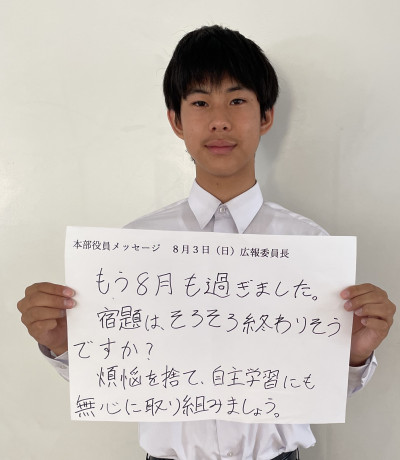 本部役員メッセージ　８月３日（日）広報委員長
もう8月も過ぎました。
宿題は、そろそろ終わりそう
ですか？
煩悩を捨て、自主学習にも
無心に取り組みましょう。